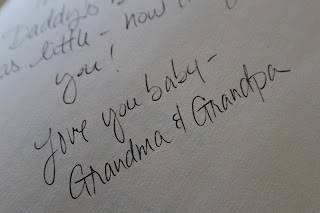 Daddy's
as little - now
you!
Love you baby -
Grandma & Grandpa